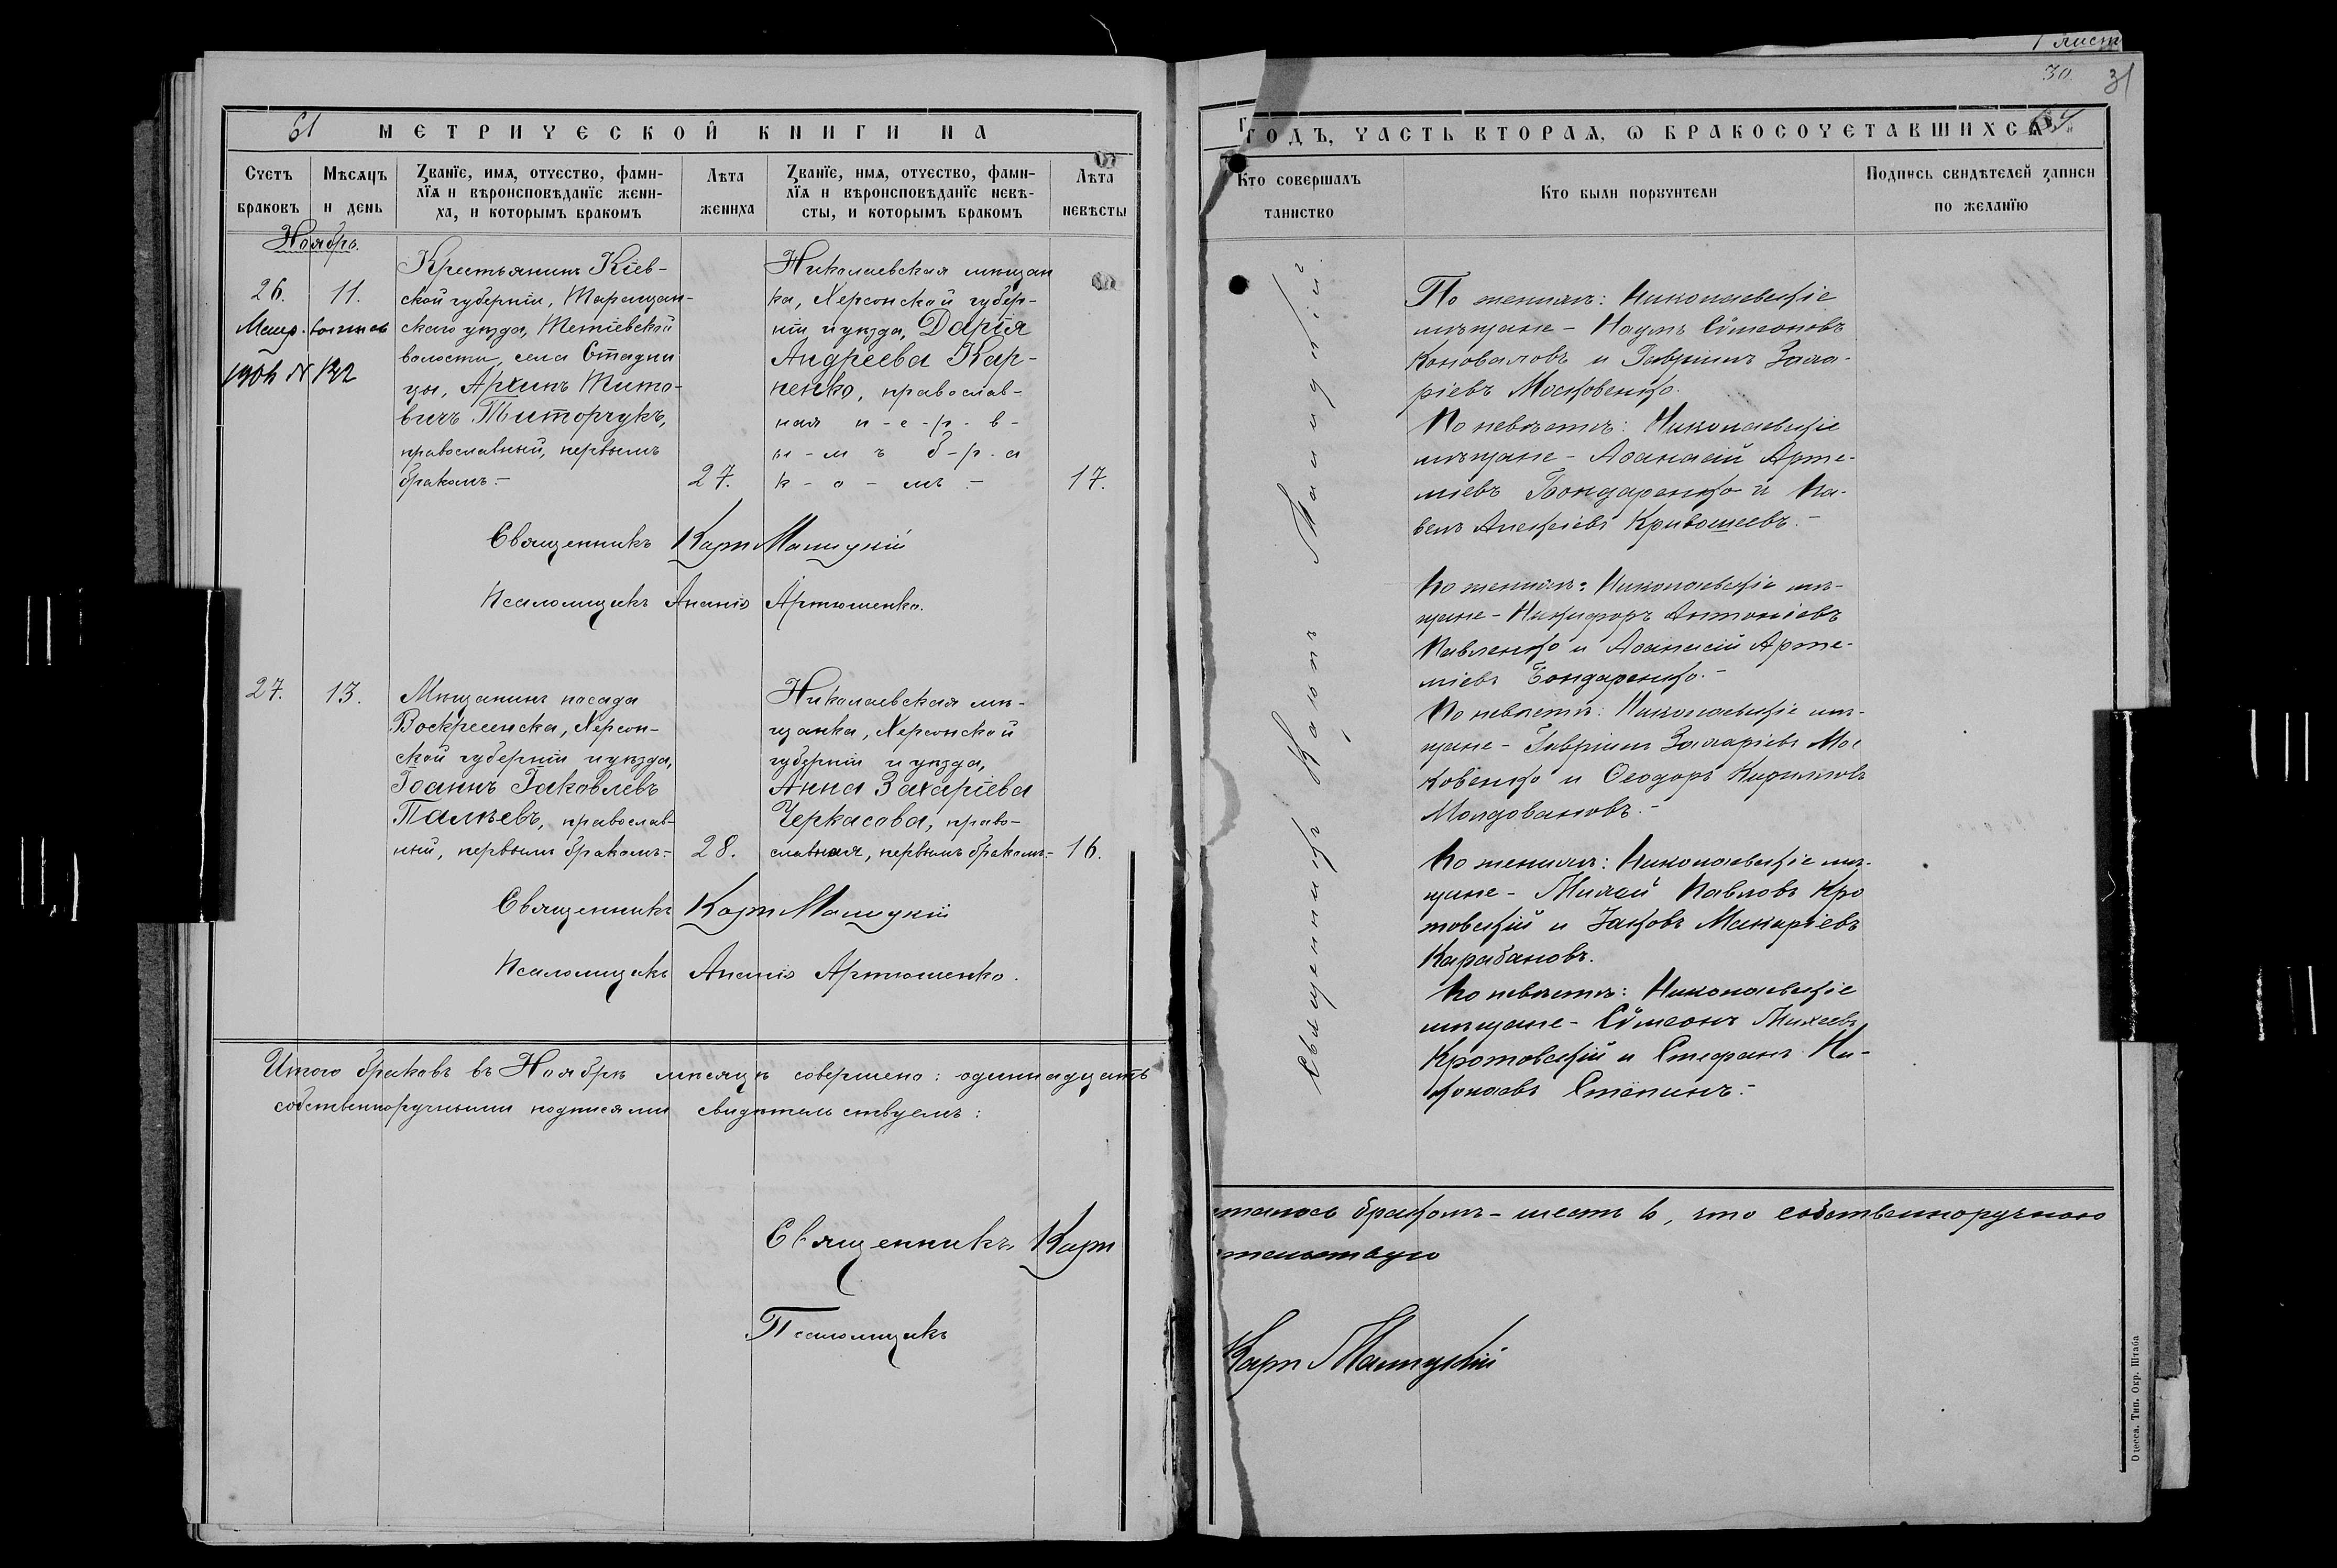 61
МЕТРИЧЕСКОЙ КНИГИ НА
Счетъ браковъ
Мѣсяцъ и день
Званіе, имя, отчество, фами-
лія и вѣроисповѣданіе жени-
ха, и которымъ бракомъ
Лѣта жениха
Званіе, имя, отчество, фами-
лія и вѣроисповѣданіе невѣ-
сты, и которымъ бракомъ
Лѣта невѣсты
Ноябрь.
26.
11.
Крестьянинъ Кіев-
ской губерніи, Таращан-
скаго уѣзда, Тетіевской
волости, села Стадни
цы, Архипъ Тито-
вичъ Титорчукъ,
православный, первымъ
бракомъ.-
27.
Николаевская мѣщан
ка, Херсонской губер-
ніи и уѣзда, Дарія
Андреева Кар-
пенко, православ-
ная п-е-р-в-
ы-м ъ б-р-а
к-о-мъ-
17.
Священникъ Карп Малицкій
Псаломщикъ Ананія Артюшенко.
27.
13.
Мѣщанинъ посада
Воскресенска, Херсон-
ской губерніи и уѣзда,
Іоаннъ Іаковлевъ
Палѣевъ, православ-
ный, первымъ бракомъ-
28.
Николаевская мѣ-
щанка, Херсонской
губерніи и уѣзда,
Анна Захаріева
Черкасова, право-
славная, первымъ бракомъ-
16.
Священникъ Карп Малицкій
Псаломщикъ Ананія Артюшенко.
Итого браковъ въ Ноябрѣ мѣсяцѣ совершено: одиннадцать
собственноручными подписями свидѣтельствуемъ:
Священникъ Карп
Псаломщикъ
1 лист
30.
31
ГОДЪ, ЧАСТЬ ВТОРАЯ, О БРАКОСОЧЕТАВШИХСЯ
Кто совершалъ таинство
Кто были поручители
Подпись свидѣтелей записи по желанію
Священникъ Карпъ Малицкій.
По женихѣ: Николаевскіе
мѣщане - Наумъ Сѵмеоновъ
Коноваловъ и Гавріилъ Заха-
ріевъ Московенко.
По невѣстѣ: Николаевскіе
мѣщане - Аѳанасій Арте-
міевъ Бондаренко и Па-
велъ Алексіевъ Кривошеевъ.-
По женихѣ: Николаевскіе мѣ-
щане - Никифоръ Антоніевъ
Павленко и Аѳанасій Арте-
міевъ Бондаренко.-
По невѣстѣ: Николаевскіе мѣ-
щане - Гавріилъ Захаріевъ Мос
ковенко и Ѳеодоръ Кирилловъ
Молдовановъ.-
По женихѣ: Николаевскіе мѣ-
щане - Михей Павловъ Кро
товскій и Іаковъ Макаріевъ
Карабановъ.
По невѣстѣ: Николаевскіе
мѣщане - Сѵмеонъ Михеевъ
Кротовскій и Стефанъ Ни-
колаевъ Степинъ.-
талось бракомъ - шесть 6, что собственноручно
тельствую
Карп Малицкій
Одесса. Тип. Окр. Штаба